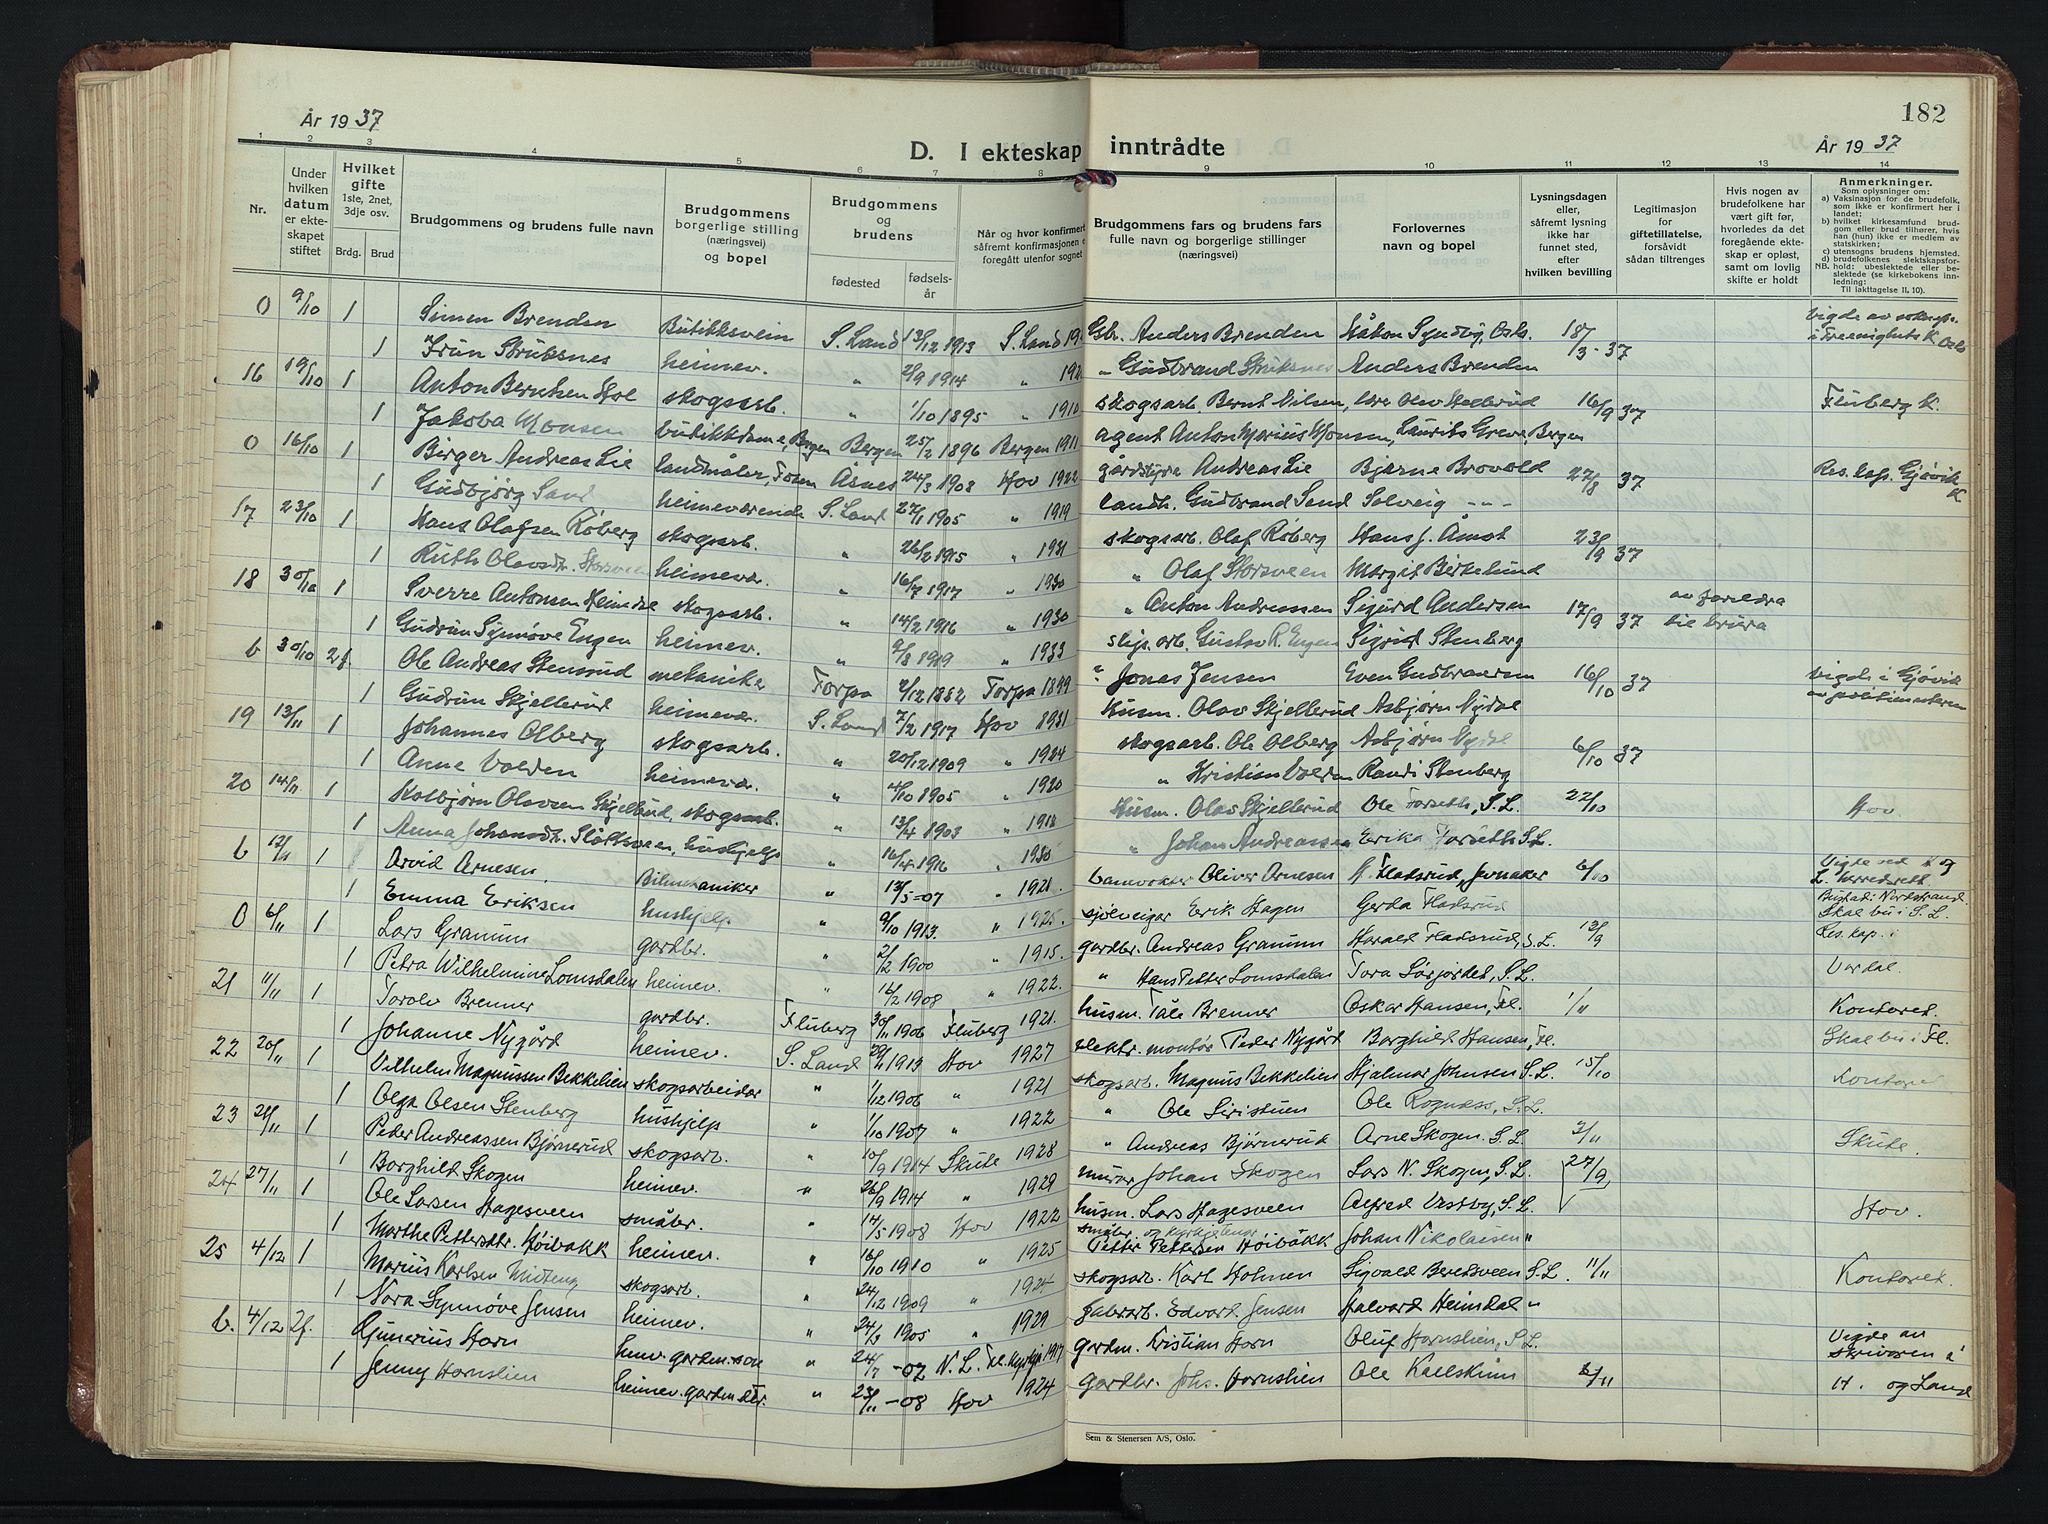 År 1937
D. I ekteskap inntrådte
År 1937
182
1 2 3 4 5 6 7 8 9 10 11 12 13 14
Nr.
Under hvilken datum er ekteskapet stiftet
Hvilket gifte 1ste, 2net, 3dje osv.
Brdg. Brud
Brudgommens og brudens fulle navn
Brudgommens borgerlige stilling (næringsvei) og bopel
Brudgommens og brudens
fødested
fødselsår
Når og hvor konfirmert
såfremt konfirmasjonen e
foregått utenfor sognet
Brudgommens fars og brudens fars fulle navn og borgerlige stillinger (næringsvei)
Forlovernes navn og bopel
Lysningsdagen eller, såfremt lysning ikke har funnet sted, efter hvilken bevilling
Legitimasjon for giftetillatelse, forsåvidt sådan tiltrenges
Hvis nogen av brudefolkene har vært gift før, hvorledes da det foregående ekteskap er opløst, samt om lovlig skifte er holdt
Anmerkninger.
Som oplysninger om:
a) Vaksinasjon for de brudefolk, som ikke er konfirmert her i landet;
b) hvilket kirkesamfund brudgom eller brud tilhører, hvis han (hun) ikke er medlem av statskirken;
c) utensogns brudens hjemsted.
d) brudefolkenes slektskapsforhold: ubeslektede eller beslektede (se kirkebokens innledning:
NB. Til iakttagelse II, 10).
0 9/10 1 Simen Brenden Butikksvein S. Land 13/12 1913 S. Land Gbr. Anders Brenden Håkon Syndby, Oslo. 18/3-37 Vigde av
1 Struksnes heimev. " 2/9 1914 " Gudbrand Struksnes Anders Brenden
16 19/10 1 Anton Berntsen Hol skogsarb. " 1/10 1895 " 1910 skogsarb. Bernt Nilsen, 16/9 37 Fluberg K.
1 Jakoba Monsen butikkdame, Bergen Bergen 25/2 1896 Bergen 1911 agent Anton Marius Monsen, Laurits Greve, Bergen
0 16/10 1 Birger Andreas Lie landmåler, Åsnes 24/3 1908 Hov 1922 Andreas Lie Bjarne Brovold 27/8 37 Res. kap. Gjøvik K
1 Gudbjørg Sand heimeværende S. Land 27/1 1905 " 1919 landh. Gudbrand Sand Solveig - - -
17 23/10 1 Hans Olafsen Røberg skogsarb. " 26/2 1915 " 1931 skogsarb. Olaf Røberg Hans J. Åmot 23/9 37
1 Ruth Olavsdtr. Storsveen heimevær. " 16/7 1917 " 1930 " Olaf Storsveen Margit Birkelund
18 30/10 1 Sverre Antonsen skogsarb. " 14/2 1916 " 1930 " Anton Andreassen Sigurd Andersen 17/9 37 av foreldra til brura
1 Gudrun Synnøve Engen heimev. " 9/8 1919 " 1933 Gustav R. Engen Sigrid Stenberg
b 30/10 2f. Ole Andreas Stensrud mekaniker Torpa 2/12 1882 Torpa 1899 " Jonas Jensen Even Gudbransen 16/10 37 Vigde i Gjøvik
1 Gudrun Skjellerud heimevær. S. Land 7/2 1917 Hov 1931 Husm. Olav Skjellerud Asbjørn Nydal
19 13/11 1 Johannes Olberg skogsarb. " 20/12 1909 " 1924 skogsarb. Ole Olberg Asbjørn Nydal 6/10 37
1 Anne Volden heimevær. " 4/10 1905 " 1920 " Kristian Volden Randi Stenberg
20 14/11 1 Kolbjørn Olavsen Skjellerud, skogsarb. " 13/4 1903 " 1918 Husm. Olav Skjellerud Ole Forseth, S. L. 22/10 Hov
1 Anna Johansdtr. Slåttsveen, hushjelp " 16/4 1916 " 1930 " Johan Andreassen Erika Forseth S. L.
b 12/11 1 Arvid Arnesen. Bilmekaniker " 13/5 -07 " 1921. banevokter Oliver Arnesen H. Fladsrud, Jevnaker 6/10 Vigde ved H og L. herredsrett
1 Emma Eriksen hushjelp " 9/10 1913. " 1925. sjølveigar Erik Hagen Gerda Fladsrud Bustad: Nordstrand. Skal bu i S. L.
0 6/11 1 Lars Granum gardbr. " 2/2 1900 " 1915. gardbr. Andreas Granum Harald Fladsrud, S. L. 12/9 Res. kap. i
1 Petra Wilhelmine Lomsdalen heimev. " 16/2 1908 " 1922. " Hans Petter Lomsdalen Tora Sørjordet, S. L. Vardal.
21 11/11 1 Torolv Brenner gardbr. Fluberg 30/11 1906 Fluberg 1921. husm. Tåle Brenner Oskar Hansen, Fl. 1/11 Kontoret.
1 Johanne Nygård heimev. S. Land 29/11 1913 Hov 1927 elektr. montør Peder Nygård Borghild Hansen, Fl. Skal bu i Fl.
22 20/11 1 Vilhelm Magnussen Bekkelien skogsarbeidar " 1/12 1906 " 1921 skogsarb. Magnus Bekkelien Hjalmar Johnsen S. L. 15/10 Kontoret
1 Olga Olsen Stenberg hushjelp " 1/10 1907 " 1922 " Ole Siristuen Ole Rognaas, S. L.
23 21/11 1 Peder Andreassen Bjørnerud skogsarb. " 10/9 1914 Skute 1928 " Andreas Bjørnerud Arne Skogen. S. L. 2/11 Skute.
1 Borghild Skogen heimev. " 26/9 1914 " 1929 murar Johan Skogen Lars N. Skogen, S. L. 27/9
24 27/11 1 Ole Larsen Hagesveen småbr. " 14/5 1908 Hov 1922 husm. Lars Hagesveen Alfred Vestby, S. L. Hov.
1 Marthe Pettersdtr. Høibakk heimev. " 16/10 1910 " 1925 småbr. og kyrkjetenar Petter Pettersen Høibakk Johan Nikolaisen "
25 4/12 1 Marius Karlsen Midteng skogsarb. " 24/12 1909 " 1924 skogsarb. Karl Holmen Sigvald Beretsveen S. L. 11/11 Kontoret.
1 Nora Synnøve Jensen heimev. " 24/3 1905 " 1929 fabrarb. Edvard Jensen Halvard Heimdal "
b. 4/12 2f. Gunerius Horn heimv. gardm. son " 24/7 -02 N. L. Fl. kyrkje 1917 gardm. Kristian Horn Oluf Hornslien, S. L. Vigde av skrivaren i
1 Jenny Hornslien heimev. gardm. dtr. " 23/11 -08 Hov 1924 gardbr. Johs. Hornslien Ole Kallskun 6/11 H. og Land
Sem & Stenersen A/S, Oslo.